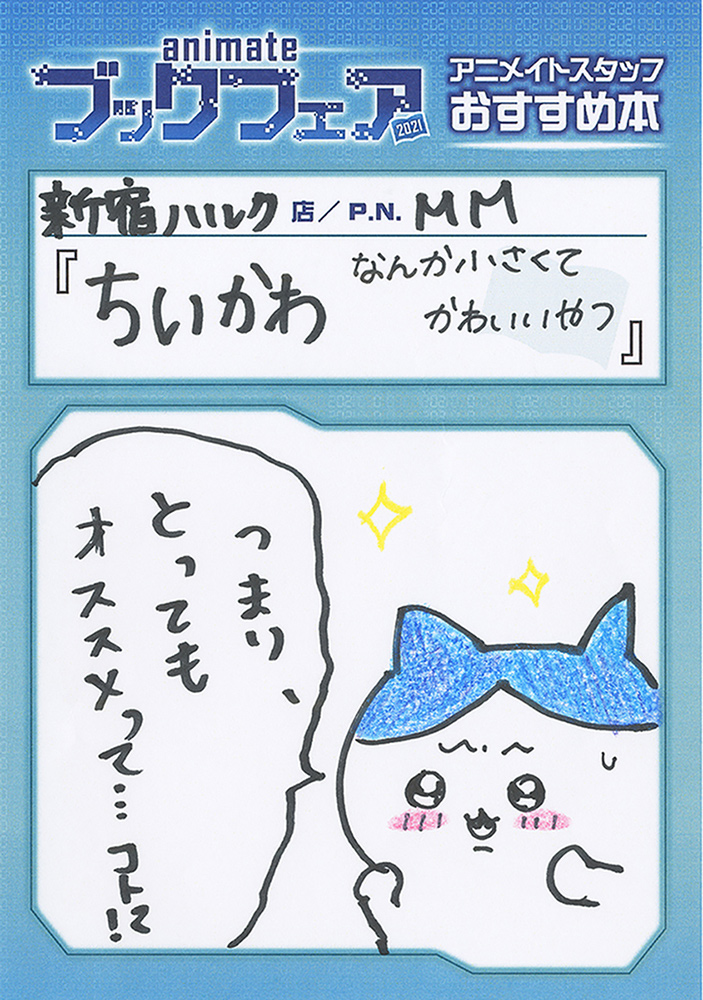 animate
ブックフェア
2021
アニメイトスタッフ
おすすめ本
新宿ハルク 店／P.N. MM
『ちいかわ なんか小さくて
かわいいやつ』
つまり、
とっても
オススメって…コト!?